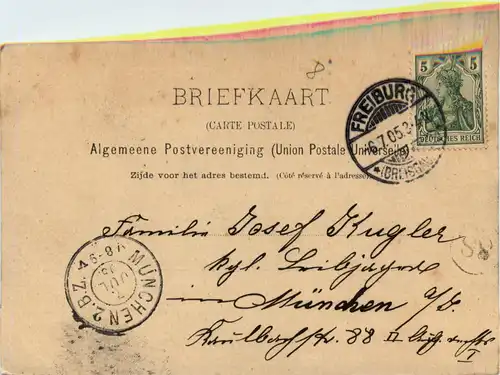 8
BRIEFKAART
(CARTE POSTALE)
Algemeene Postvereeniging (Union Postale Universelle)
Zijde voor het adres bestemd. (Côté réservé à l'adresse)
5 5
DEUTSCHES REICH
FREIBURG
6.7.05.3-
(BREISGAU)
Familie Josef Kugler
kgl. Leibjäger
in München a/I.
Kaulbachstr. 88 II Aufg. rechts
I
MÜNCHEN 2 B.Z.
7
JUL
05
8-9